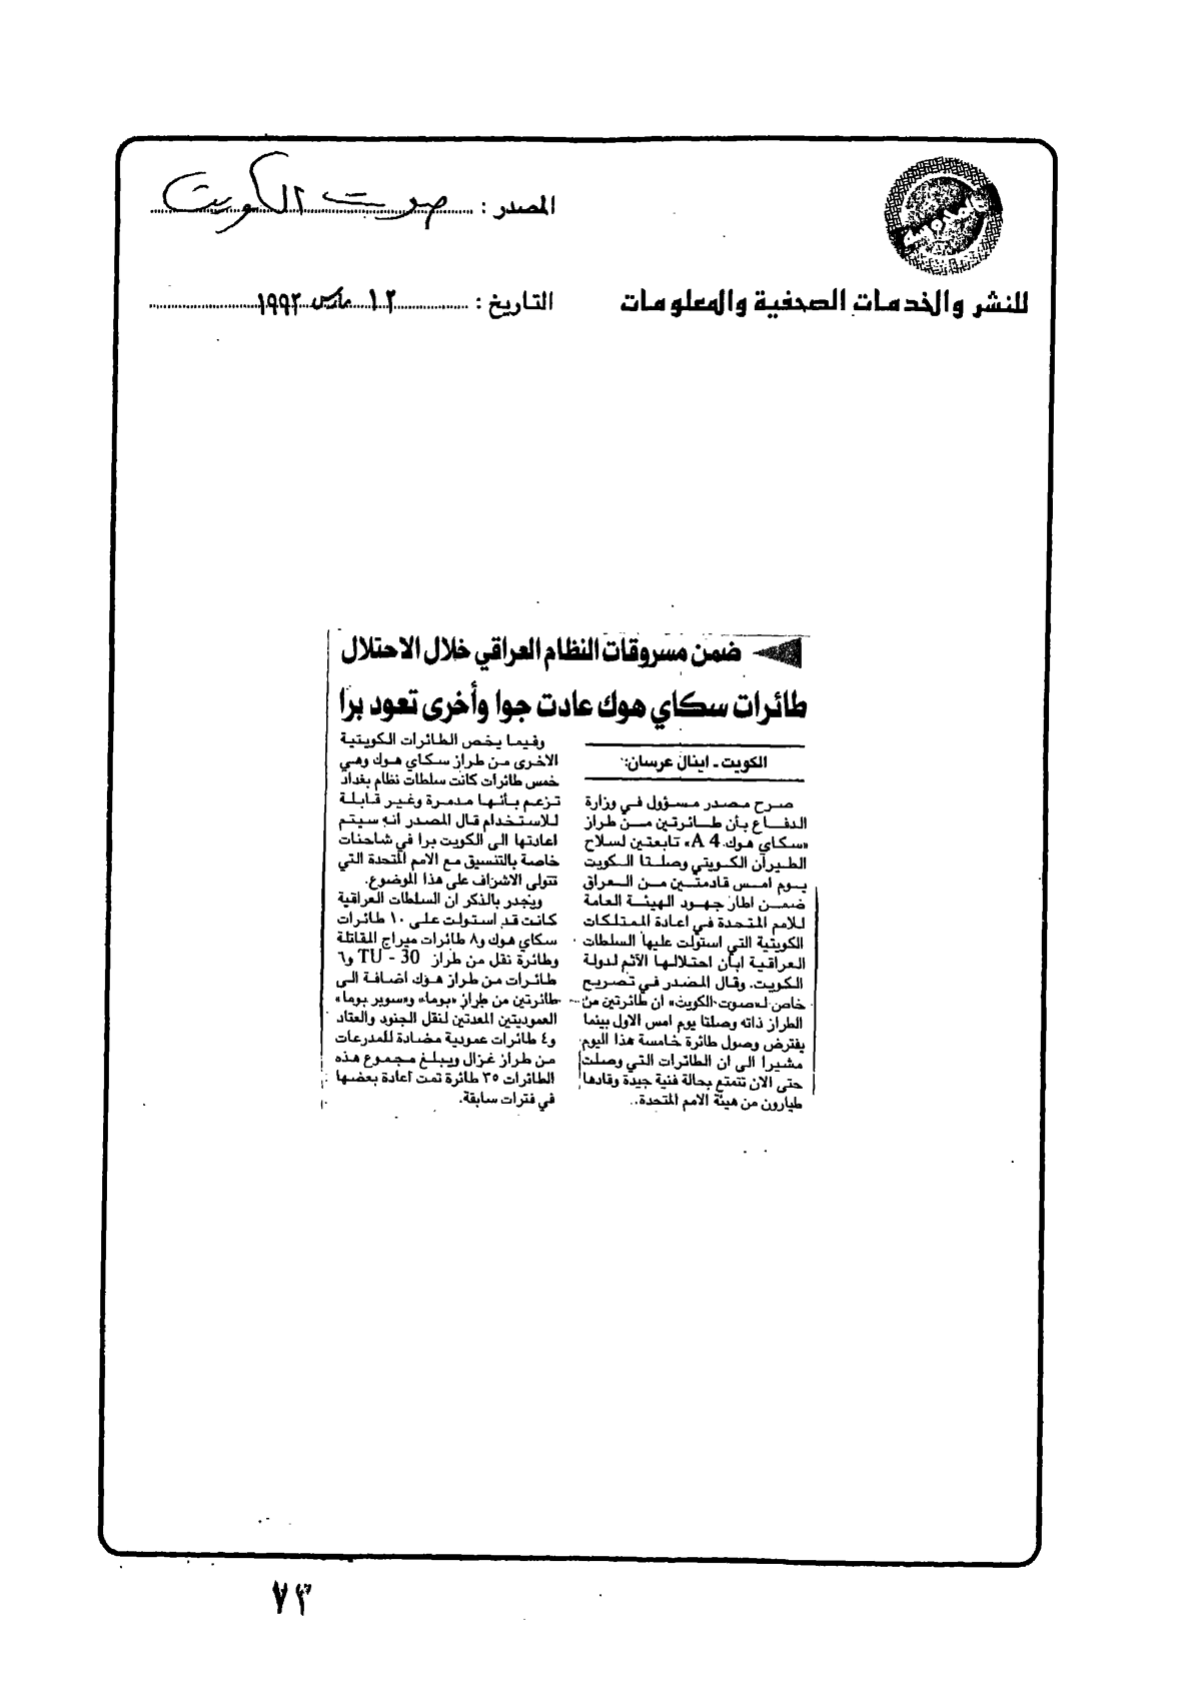 المصدر : صوت الكويت
للنشر والخدمات الصحفية والمعلومات
التاريخ : ١٢ مارس ١٩٩٢
ضمن مسروقات النظام العراقي خلال الاحتلال
طائرات سكاي هوك عادت جوا وأخرى تعود برا
الكويت ـ اينال عرسان:
صرح مصدر مسؤول في وزارة
الدفاع بأن طائرتين من طراز
«سكاي هوك A 4» تابعتين لسلاح
الطيران الكويتي وصلتا الكويت
يوم امس قادمتين من العراق
ضمن اطار جهود الهيئة العامة
للامم المتحدة في اعادة الممتلكات
الكويتية التي استولت عليها السلطات
العراقية ابان احتلالها الآثم لدولة
الكويت. وقال المصدر في تصريح
خاص لـ«صوت الكويت» ان طائرتين من
الطراز ذاته وصلتا يوم امس الاول بينما
يفترض وصول طائرة خامسة هذا اليوم
مشيرا الى ان الطائرات التي وصلت
حتى الان تتمتع بحالة فنية جيدة وقادها
طيارون من هيئة الامم المتحدة.
وفيما يخص الطائرات الكويتية
الاخرى من طراز سكاي هوك وهي
خمس طائرات كانت سلطات نظام بغداد
تزعم بأنها مدمرة وغير قابلة
للاستخدام قال المصدر انه سيتم
اعادتها الى الكويت برا في شاحنات
خاصة بالتنسيق مع الامم المتحدة التي
تتولى الاشراف على هذا الموضوع.
ويجدر بالذكر ان السلطات العراقية
كانت قد استولت على ١٠ طائرات
سكاي هوك و٨ طائرات ميراج المقاتلة
وطائرة نقل من طراز TU - 30 و٦
طائرات من طراز هوك اضافة الى
طائرتين من طراز «بوما» و«سوبر بوما»
العموديتين المعدتين لنقل الجنود والعتاد
و٤ طائرات عمودية مضادة للمدرعات
من طراز غزال ويبلغ مجموع هذه
الطائرات ٣٥ طائرة تمت اعادة بعضها
في فترات سابقة.
٧٣